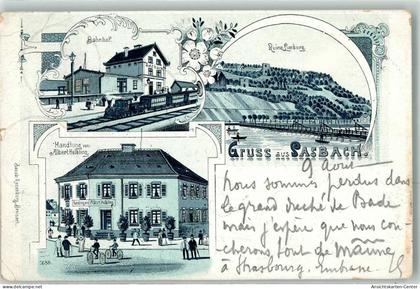 Bahnhof.
Ruine Limburg.
Handlung von
Albert Helbling
GRUSS aus SASBACH.
9 Aout
Nous sommes perdus dans
le grand duché de Bade
Mais j'espère que nous cou-
cherons tout de même
à Strasbourg. Embrasse
Ansichtskarten-Center